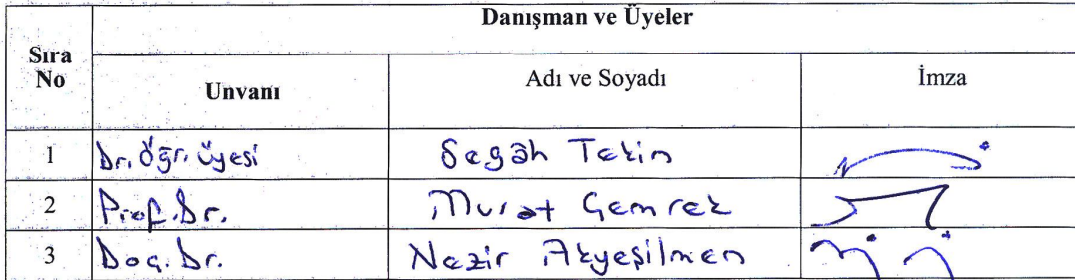 Danışman ve Üyeler
Sıra No Unvanı Adı ve Soyadı İmza
1 Dr. Öğr. Üyesi Segâh Tekin
2 Prof. Dr. Murat Çemrek
3 Doç. Dr. Nezir Akyeşilmen